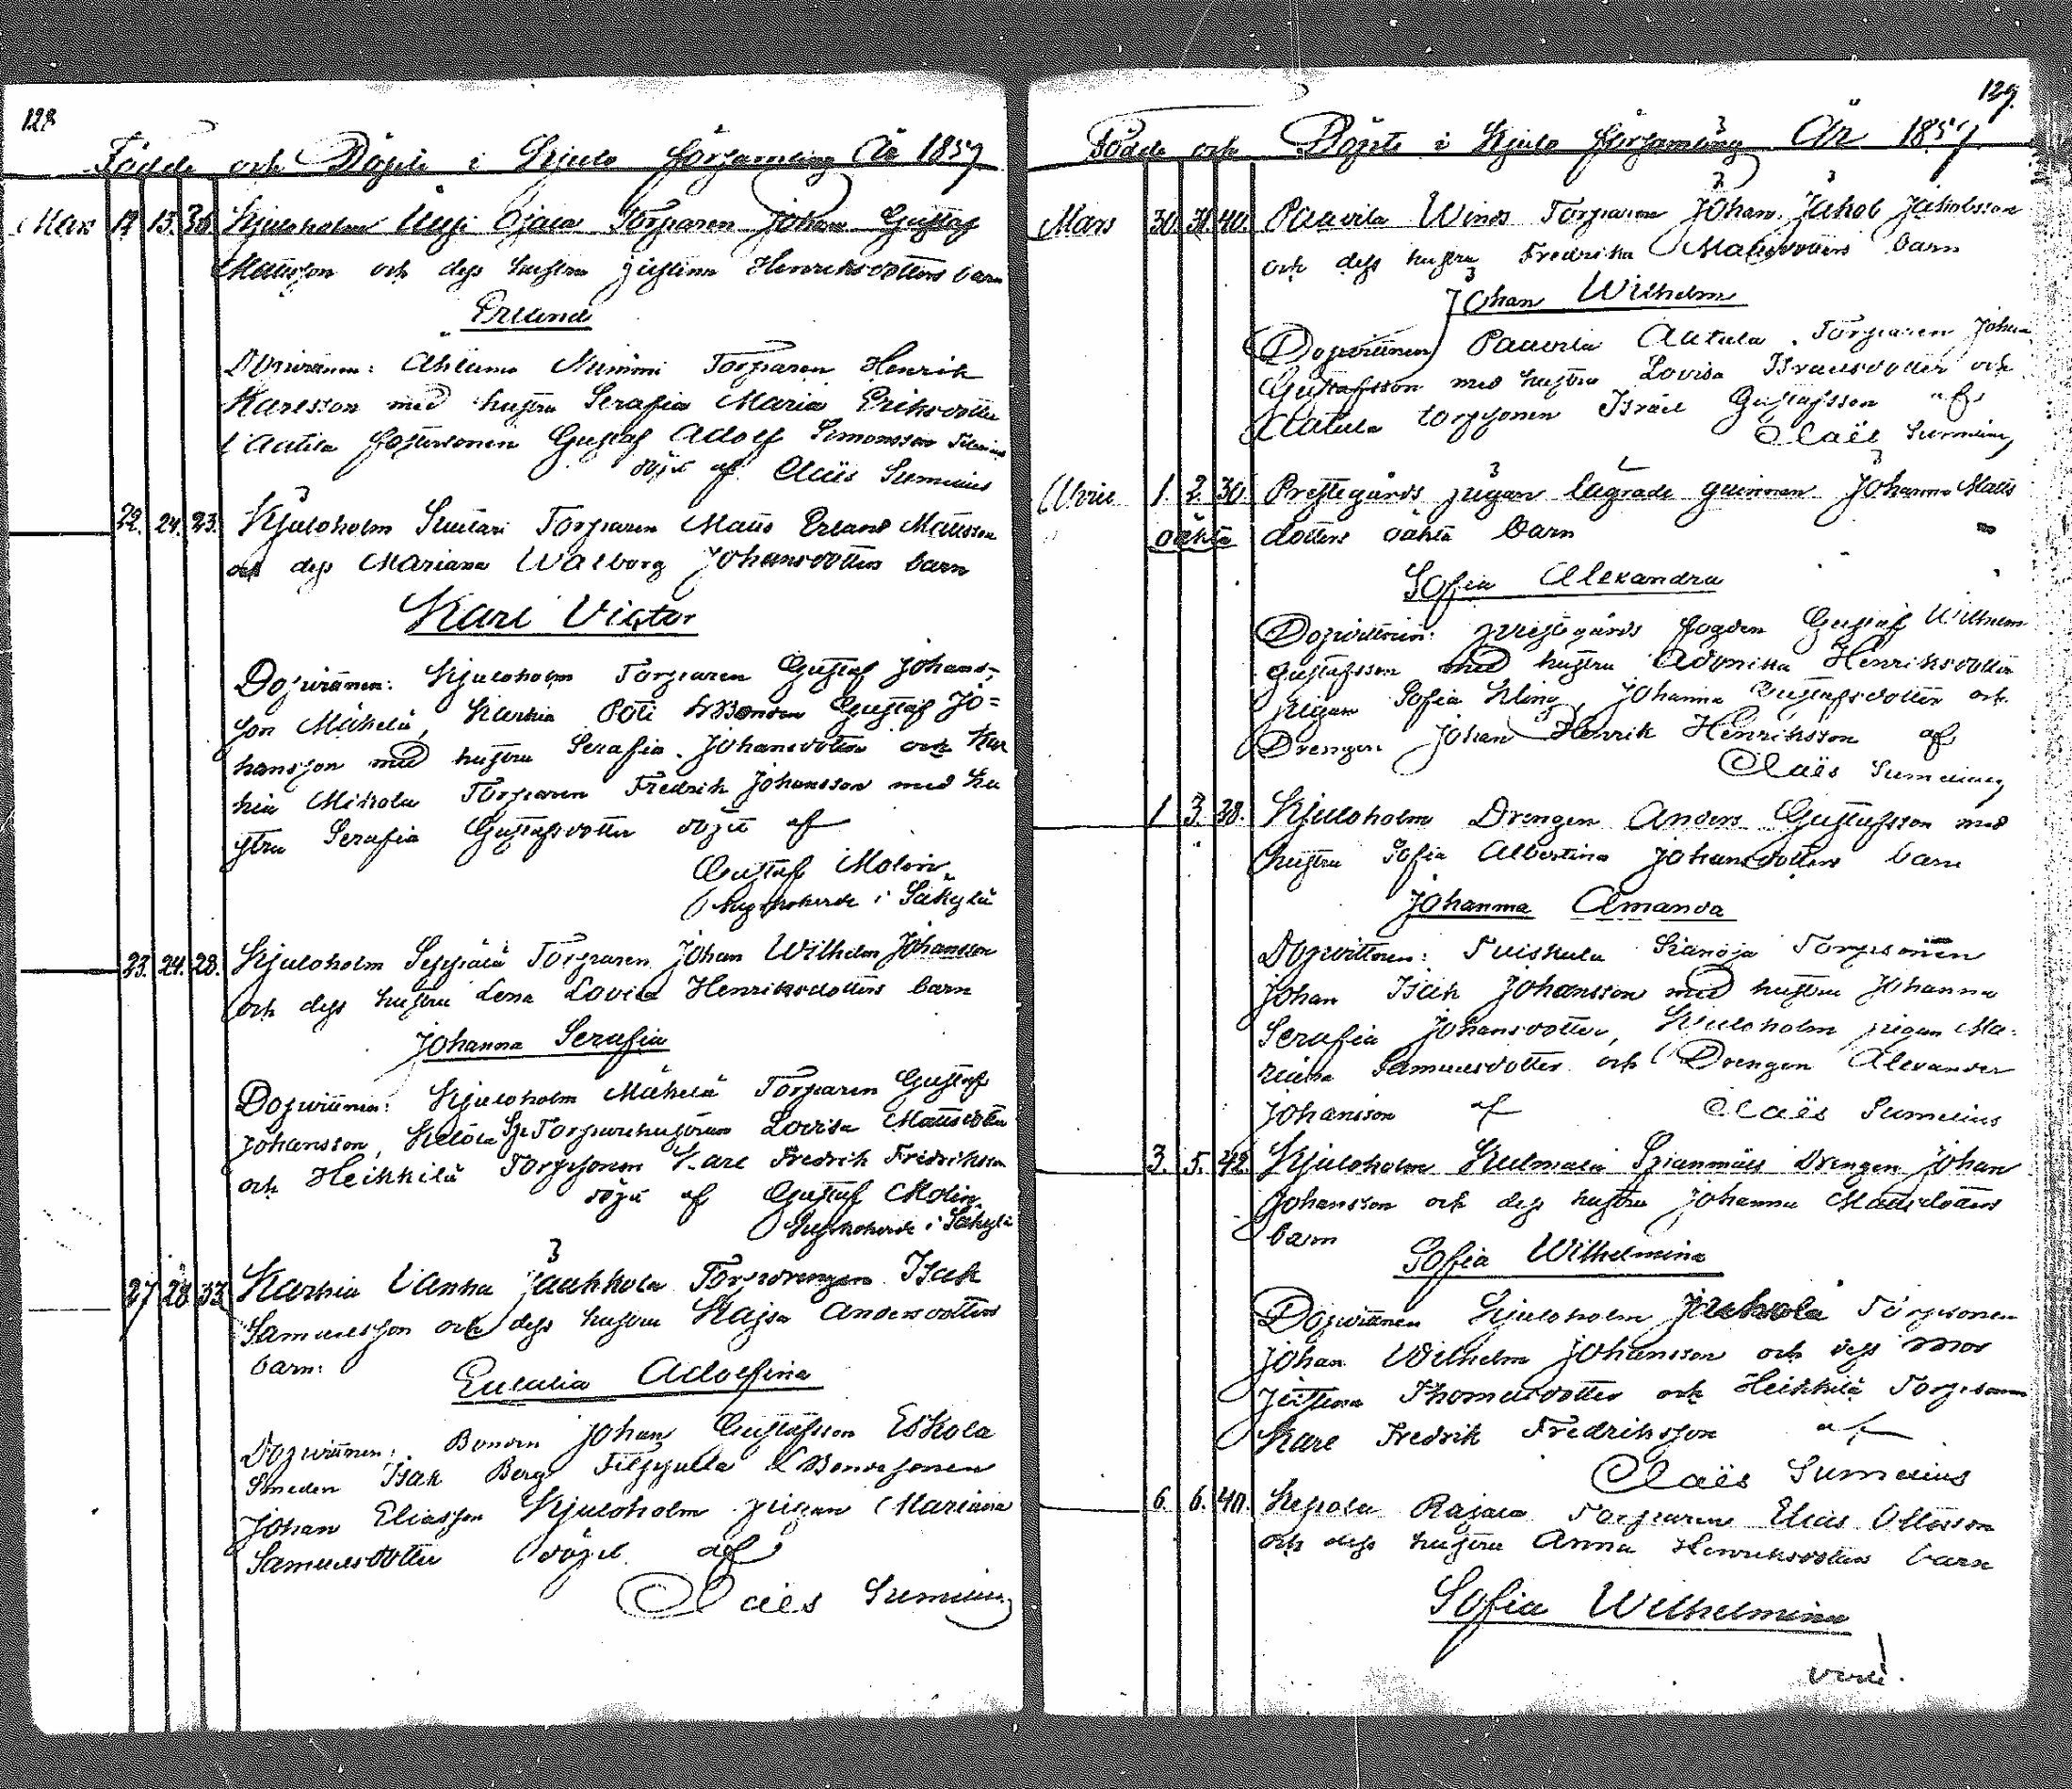 128
Födde och Döpte i Kjulo församling År 1857
Mars 12. 13. 36. Kjuloholm Ojala Torparen Johan Gustaf
Mattsson och dess hustru Justina Henriksdotters barn
Erland
Dopvittnen: Ahlaino Nummi Torparen Henrik
Karlsson med hustru Serafia Maria Eriksdotter
Anttila fostersonen Gustaf Adolf Simonsson
döpt af Claës Sumelius
22. 24. 23. Kjuloholm Torparen Matts Erland Mattsson
och dess Mariana Walborg Johansdotters barn
Karl Victor
Dopvittnen: Kjuloholm Torparen Gustaf Johans-
son Mäkelä, Karhia Poti Bonden Gustaf Jo=
hansson med hustru Serafia Johansdotter och Kar
hia Mikola Torparen Fredrik Johansson med hu
stru Serafia Gustafsdotter döpt af
Gustaf Molin,
Kyrkoherde i Säkylä
23. 24. 28. Kjuloholm Seppälä Torparen Johan Wilhelm Johansson
och dess hustru Lena Lovisa Henriksdotters barn
Johanna Serafia
Dopvittnen: Kjuloholm Mäkelä Torparen Gustaf
Johansson, Torparehustrun Lovisa Mattsdotter
och Heikkilä Torpsonen Karl Fredrik Fredriksson
döpt af Gustaf Molin,
Kyrkoherde i Säkylä
27. 28. 33. Karhia Vanha Jaakkola Torpdrengen Isak
Samuelsson och dess hustru Kajsa Andersdotters
barn:
Eulalia Adolfina
Dopvittnen: Bonden Johan Gustafsson Eskola
Smeden Isak Berg Filppula Bondesonen
Johan Eliasson Kjuloholm pigan Mariana
Samuelsdotter döpt af
Claës Sumelius
129.
Födde och Döpte i Kjulo församling År 1857.
Mars 30. 31. 40. Paavila Winds Torparen Johan Jakob Jakobsson
och dess hustru Fredrika Mattsdotters barn
Johan Wilhelm
Dopvittnen Paavila Aatula Torparen Johan
Gustafsson med hustru Lovisa Israelsdotter och
Aatula torpsonen Israel Gustafsson af
Claës Sumelius
April 1. 2. 30. Prestegårds pigan lägrade qvinnan Johanna Matts
oäkta dotters oäkta barn
Sofia Alexandra
Dopvittnen: prestegårds fogden Gustaf Wilhelm
Gustafsson med hustru Adonika Henriksdotter
pigan Sofia Kling, Johanna Gustafsdotter och
Drengen Johan Henrik Henriksson af
Claës Sumelius
1. 3. 28. Kjuloholm Drengen Anders Gustafsson med
hustru Sofia Albertina Johansdotters barn
Johanna Amanda
Dopvittnen: Tuiskula Sianoja Torpsonen
Johan Isak Johansson med hustru Johanna
Serafia Johansdotter, Kjuloholm pigan Ma-
riana Samuelsdotter och Drengen Alexander
Johansson af Claës Sumelius
3. 5. 42. Kjuloholm Kulmala Drengen Johan
Johansson och dess hustru Johanna Mattsdotters
barn
Sofia Wilhelmina
Dopvittnen Kjuloholm Jaakola Torpsonen
Johan Wilhelm Johansson och dess mor
Justina Thomasdotter och Heikkilä Torpsonen
Karl Fredrik Fredriksson af
Claës Sumelius
6. 6. 40. Kepola Rajala Torparen Elias Ottosson
och dess hustru Anna Henriksdotters barn
Sofia Wilhelmina